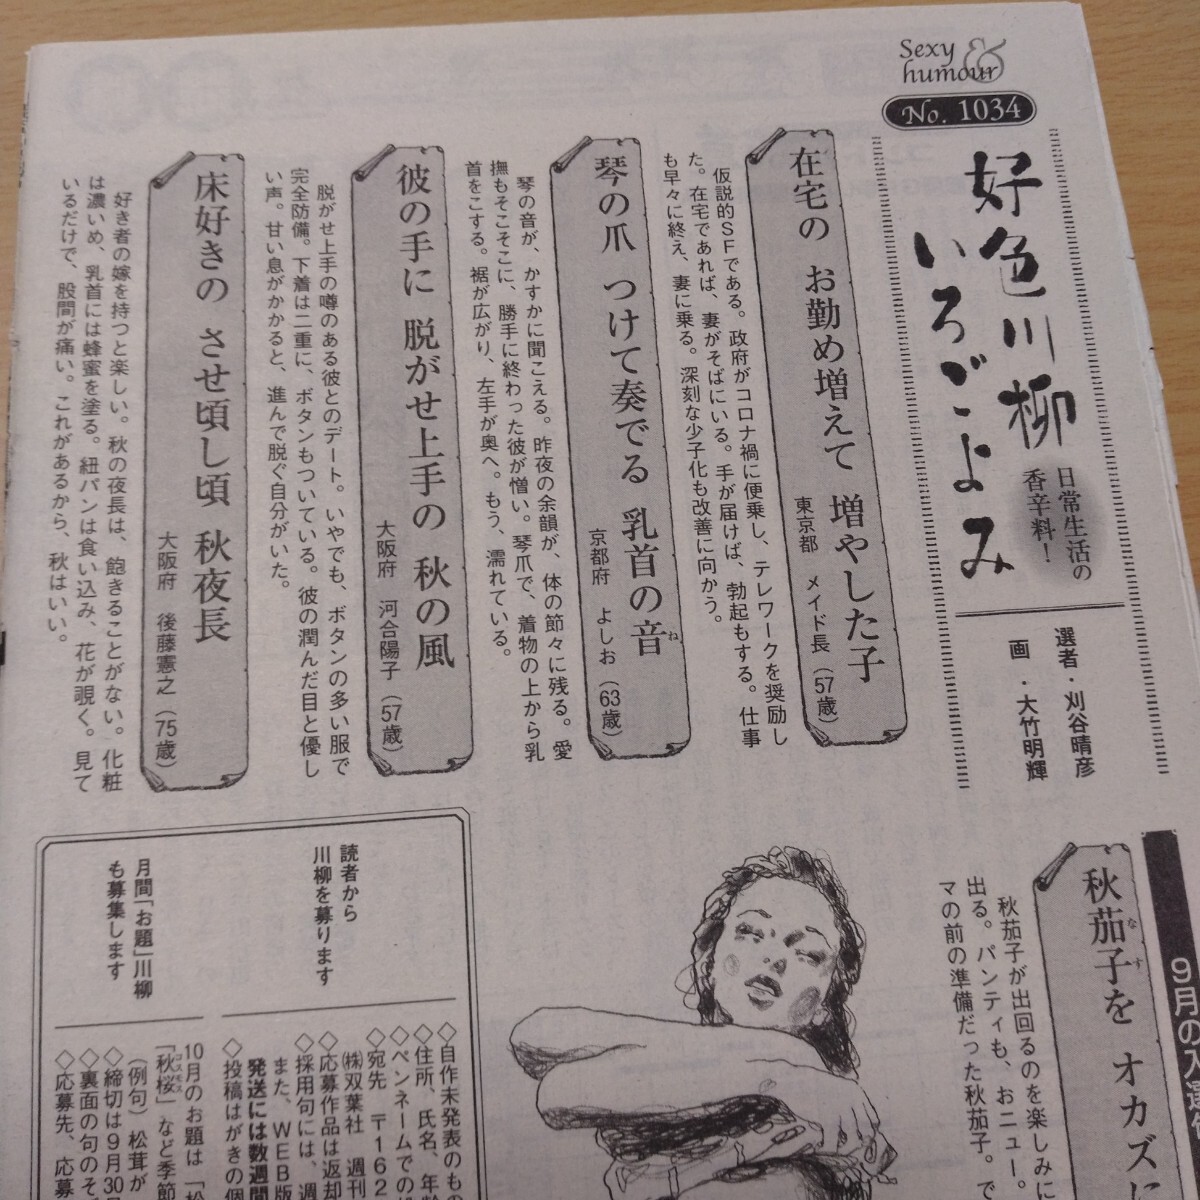 Sexy &
humour
No. 1034
好色川柳
いろごよみ
日常生活の
香辛料！
選者・刈谷晴彦
画・大竹明輝
在宅の お勤め増えて 増やした子
東京都 メイド長（57歳）
仮説的ＳＦである。政府がコロナ禍に便乗し、テレワークを奨励し
た。在宅であれば、妻がそばにいる。手が届けば、勃起もする。仕事
も早々に終え、妻に乗る。深刻な少子化も改善に向かう。
琴の爪 つけて奏でる 乳首の音
ね
京都府 よしお（63歳）
琴の音が、かすかに聞こえる。昨夜の余韻が、体の節々に残る。愛
撫もそこそこに、勝手に終わった彼が憎い。琴爪で、着物の上から乳
首をこする。裾が広がり、左手が奥へ。もう、濡れている。
彼の手に 脱がせ上手の 秋の風
大阪府 河合陽子（57歳）
脱がせ上手の噂のある彼とのデート。いやでも、ボタンの多い服で
完全防備。下着は二重に、ボタンもついている。彼の潤んだ目と優し
い声。甘い息がかかると、進んで脱ぐ自分がいた。
床好きの させ頃し頃 秋夜長
大阪府 後藤憲之（75歳）
好き者の嫁を持つと楽しい。秋の夜長は、飽きることがない。化粧
は濃いめ、乳首には蜂蜜を塗る。紐パンは食い込み、花が覗く。見て
いるだけで、股間が痛い。これがあるから、秋はいい。
9月の入選
秋茄子を オカズに
なす
秋茄子が出回るのを楽しみに
出る。パンティも、おニュー。
マの前の準備だった秋茄子。で
読者から
川柳を募ります
◇自作未発表のもの
◇住所、氏名、年齢
◇ペンネームでの
◇宛先 〒162
㈱双葉社 週刊
◇応募作品は返却
◇採用句には、週
また、ＷＥＢ版
発送には数週間
◇投稿はがきの個
月間「お題」川柳
も募集します
10月のお題は「松
「秋桜」など季節
コスモス
（例句）松茸が
◇締切は9月30日
◇裏面の句のそ
◇応募先、応募